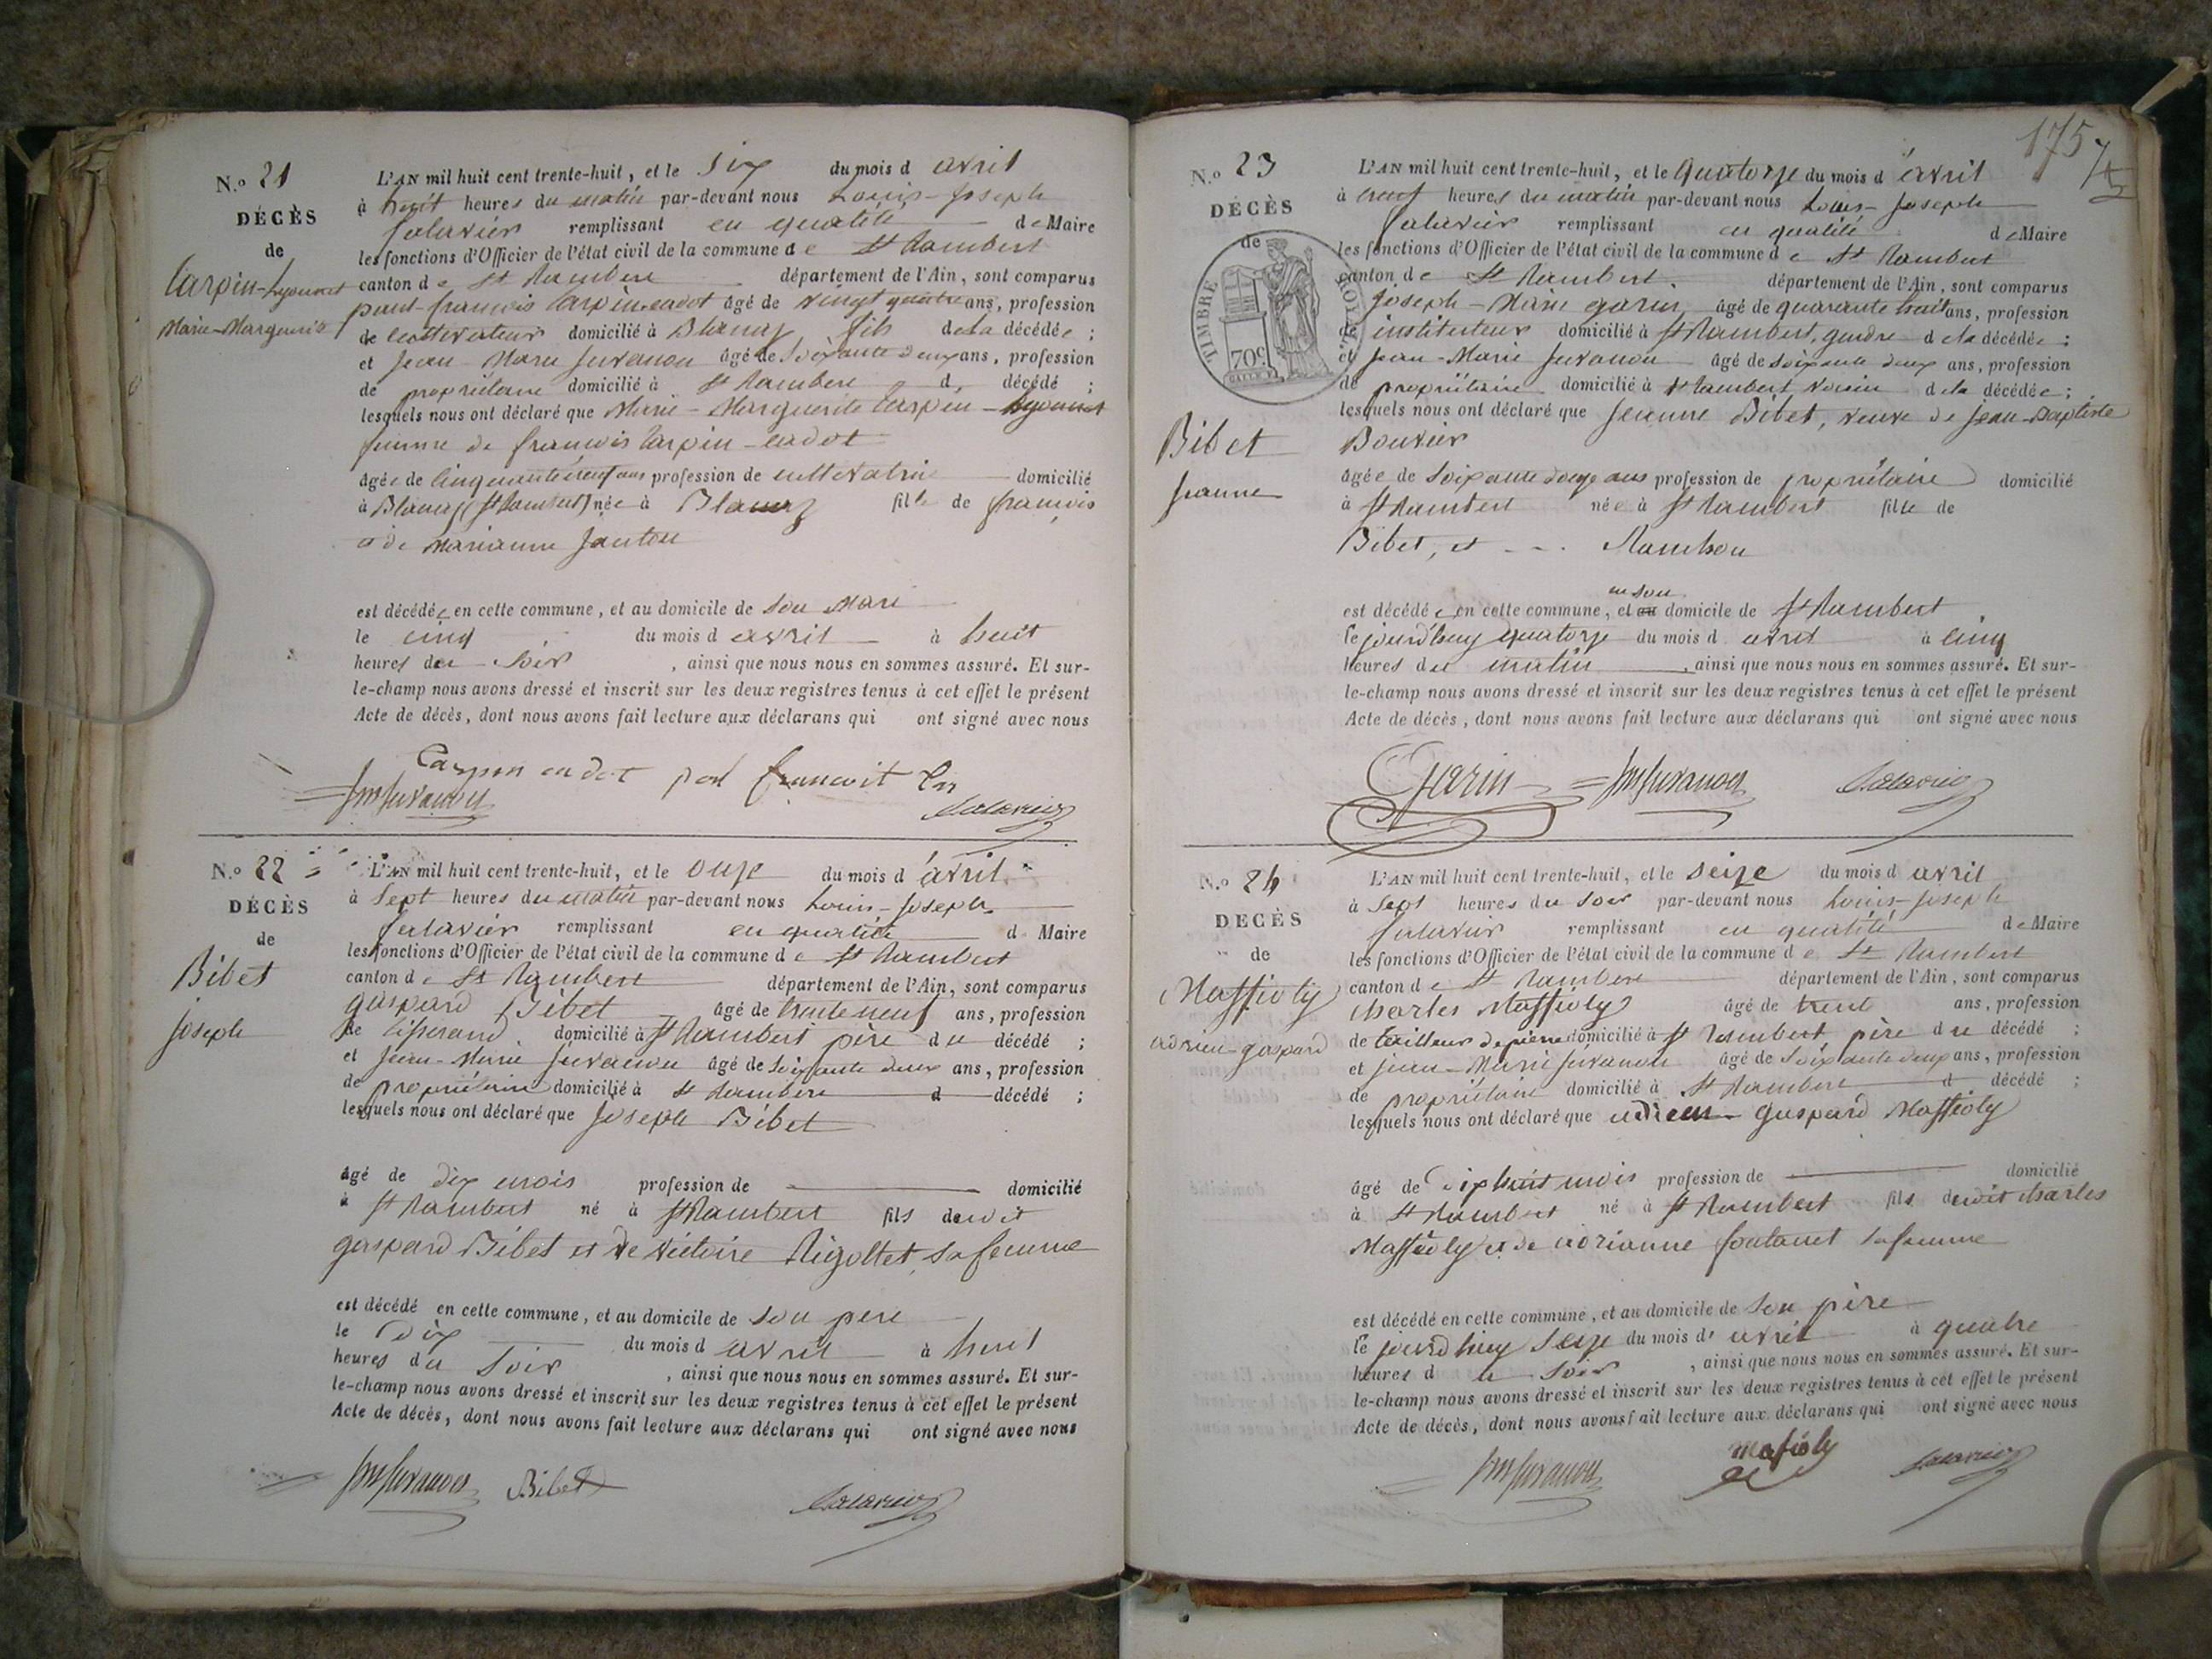 N.º 21
DÉCÈS
de
Carpin-Lyonnet
Marie-Marguerite
L'AN mil huit cent trente-huit, et le Six du mois d avril
à huit heures du matin par-devant nous Louis-Joseph
Salavier remplissant en qualité de Maire
les fonctions d'Officier de l'état civil de la commune de St Rambert
canton de St Rambert département de l'Ain, sont comparus
paul-françois Carpin-cadot âgé de vingt quatre ans, profession
de cultivateur domicilié à Blanaz fils de la décédée ;
et Jean-Marie Juvanon âgé de Soixante deux ans, profession
de propriétaire domicilié à St Rambert d décédé ;
lesquels nous ont déclaré que Marie-Marguerite Carpin-Lyonnet
femme de françois Carpin-cadot
âgée de Cinquante neuf ans profession de cultivatrice domicilié
à Blanaz (St Rambert) née à Blanaz fille de françois
et de Marianne Janton
est décédée en cette commune, et au domicile de Son Mari
le cinq du mois d avril à huit
heures du Soir, ainsi que nous nous en sommes assuré. Et sur-
le-champ nous avons dressé et inscrit sur les deux registres tenus à cet effet le présent
Acte de décès, dont nous avons fait lecture aux déclarans qui ont signé avec nous
Carpin cadot pol francoit
JM Juvanon Salavier
N.º 22
DÉCÈS
de
Bibet
Joseph
L'AN mil huit cent trente-huit, et le Onze du mois d'avril
à Sept heures du matin par-devant nous Louis-Joseph
Salavier remplissant en qualité d Maire
les fonctions d'Officier de l'état civil de la commune de St Rambert
canton de St Rambert département de l'Ain, sont comparus
gaspard Bibet âgé de trente neuf ans, profession
de tisserand domicilié à St Rambert père du décédé ;
et Jean-Marie Juvanon âgé de Soixante deux ans, profession
de propriétaire domicilié à St Rambert d décédé ;
lesquels nous ont déclaré que Joseph Bibet
âgé de dix mois profession de domicilié
à St Rambert né à St Rambert fils dudit
gaspard Bibet et de victoire Rigollet, sa femme
est décédé en cette commune, et au domicile de Son père
le dix du mois d avril à huit
heures du Soir, ainsi que nous nous en sommes assuré. Et sur-
le-champ nous avons dressé et inscrit sur les deux registres tenus à cet effet le présent
Acte de décès, dont nous avons fait lecture aux déclarans qui ont signé avec nous
JM Juvanon Bibet Salavier
175
N.º 23
DÉCÈS
de
TIMBRE ROYAL
70c
Bibet
Jeanne
L'AN mil huit cent trente-huit, et le Quatorze du mois d'avril
à neuf heures du matin par-devant nous Louis-Joseph
Salavier remplissant en qualité de Maire
les fonctions d'Officier de l'état civil de la commune de St Rambert
canton de St Rambert. département de l'Ain, sont comparus
Joseph-Marie garin, âgé de quarante huit ans, profession
de instituteur domicilié à St Rambert, gendre de la décédée ;
et Jean-Marie Juvanon âgé de soixante deux ans, profession
de propriétaire domicilié à St Rambert voisin de la décédée ;
lesquels nous ont déclaré que Jeanne Bibet, veuve de Jean-Baptiste
Bouvier
âgée de Soixante douze ans profession de propriétaire domicilié
à St Rambert née à St Rambert fille de
Bibet, et - - . Rambou
en son
est décédée en cette commune, et au domicile de St Rambert
le jourd'huy quatorze du mois d avril à cinq
heures du matin, ainsi que nous nous en sommes assuré. Et sur-
le-champ nous avons dressé et inscrit sur les deux registres tenus à cet effet le présent
Acte de décès, dont nous avons fait lecture aux déclarans qui ont signé avec nous
Garin JM Juvanon Salavier
N.º 24
DÉCÈS
de
Maffioly
adrien-gaspard
L'AN mil huit cent trente-huit, et le seize du mois d avril
à Sept heures du Soir par-devant nous Louis-Joseph
Salavier remplissant en qualité de Maire
les fonctions d'Officier de l'état civil de la commune de St Rambert
canton de St Rambert département de l'Ain, sont comparus
charles Maffioly âgé de trente ans, profession
de tailleur de pierre domicilié à St Rambert père du décédé ;
et Jean-Marie Juvanon âgé de Soixante deux ans, profession
de propriétaire domicilié à St Rambert d décédé ;
lesquels nous ont déclaré que adrien-gaspard Maffioly
âgé de dix huit mois profession de domicilié
à St Rambert né à St Rambert fils dudit charles
Maffioly et de adrianne fontanet sa femme
est décédé en cette commune, et au domicile de Son père
le jourd'huy Seize du mois d'avril à quatre
heures du Soir, ainsi que nous nous en sommes assuré. Et sur-
le-champ nous avons dressé et inscrit sur les deux registres tenus à cet effet le présent
Acte de décès, dont nous avons fait lecture aux déclarans qui ont signé avec nous
JM Juvanon mafioly Salavier